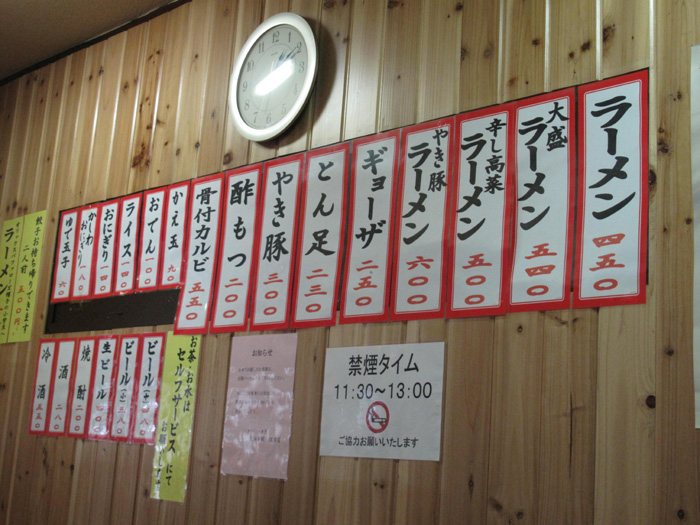 ラーメン 四五〇
大盛 ラーメン 五四〇
辛し高菜 ラーメン 五〇〇
やき豚 ラーメン 六〇〇
ギョーザ 二五〇
とん足 二三〇
やき豚 三〇〇
酢もつ 二〇〇
骨付カルビ 五五〇
かえ玉 九〇
おでん 一〇〇
ライス 一四〇
おにぎり 一四〇
かしわおにぎり 一八〇
ゆで玉子 六〇
餃子お持ち帰りできます
二人前 五〇〇円
ラーメン
ビール
ビール(小) 三八〇
生ビール
焼酎 二〇〇
酒 二八〇
冷酒 五五〇
お茶・お水は
セルフサービスにて
お願いします
お知らせ
禁煙タイム
11:30～13:00
ご協力お願いいたします